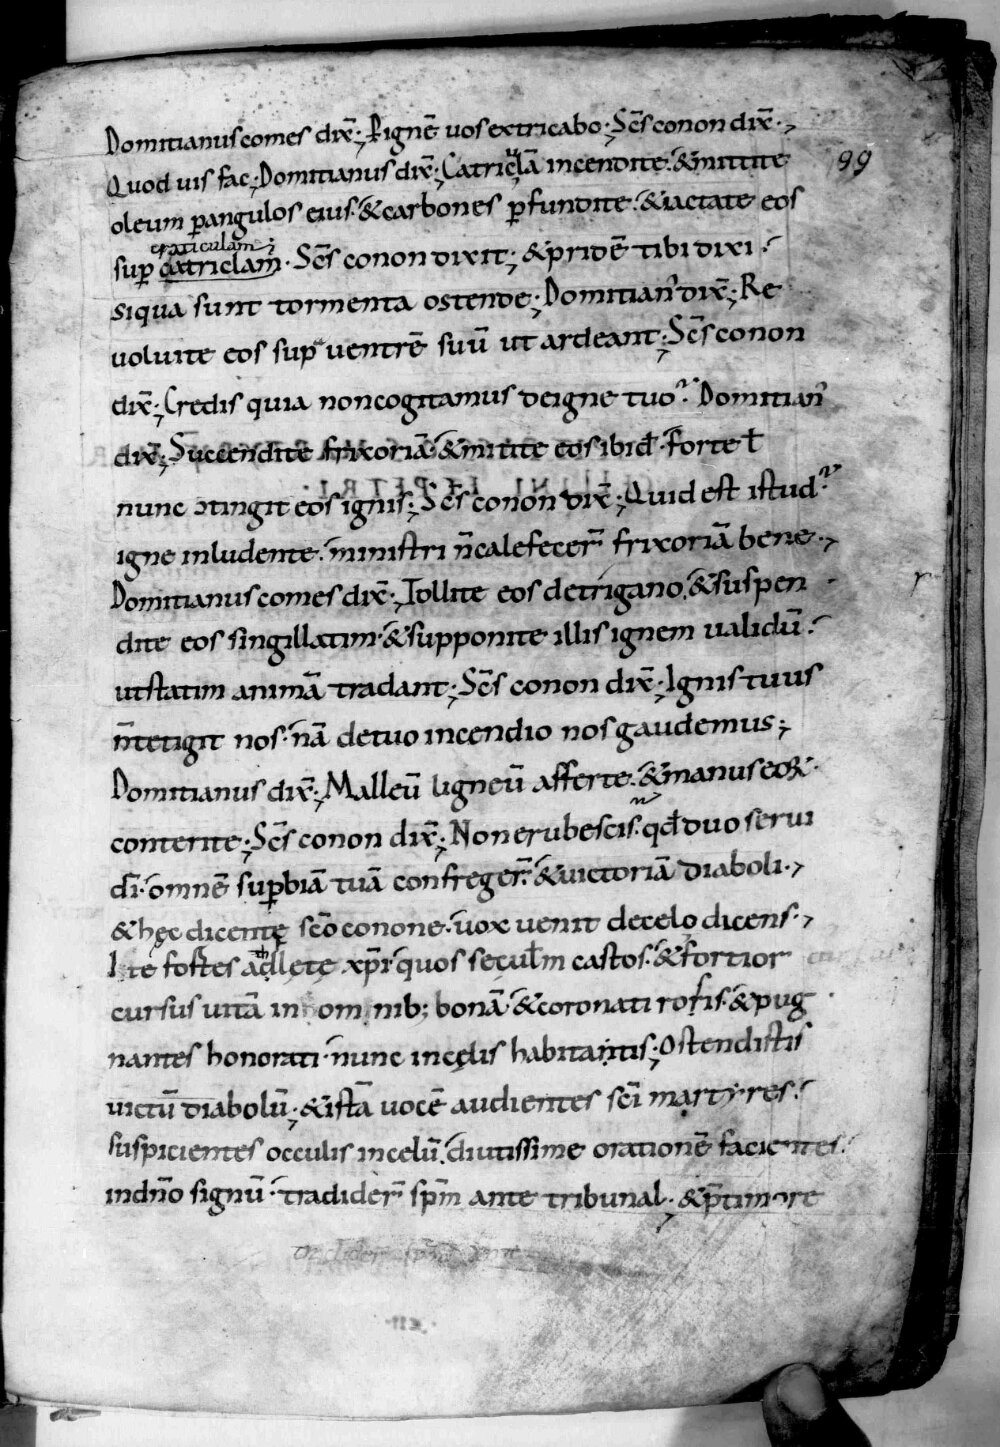 Domitianus comes dix̄; P̱ ignē uos extricabo; Sc̄s conon dix̄;
Quod uis fac; Domitianus dix̄; Catriclā incendite. & mittite 99
oleum p̱ angulos eius. & carbones p̱fundite. & iactate eos
craticulam;
sup̱ catriclam. Sc̄s conon dixit; & pridē tibi dixi.
siqua sunt tormenta ostende; Domitian' dix̄; Re
uoluite eos sup̱ ventrē suū ut ardeant; Sc̄s conon
dix̄; Credis quia non cogitamus de igne tuo? Domitian'
dix̄; Succendite frixoriā. & mitite eos ibid̄. forte ł
nunc ɔtingit eos ignis; Sc̄s conon dix̄; Quid est istud?
igne inludente. ministri n̄ calefecer̄ frixoriā bene;
Domitianus comes dix̄; Tollite eos de trigano. & suspen
dite eos singillatim. & supponite illis ignem ualidū.
ut statim animā tradant; Sc̄s conon dix̄; Ignis tuus
n̄ tetigit nos. nā de tuo incendio nos gaudemus;
Domitianus dix̄; Malleū ligneū afferte. & manus eoꝝ
conterite; Sc̄s conon dix̄; Non erubescis. qd̄ duo serui
dī. omnē sup̱biā tuā confreger̄. & uictoriā diaboli;
& hęc dicente sc̄o conone. uox uenit de celo dicens;
Ite fortes adletę xp̄i quos secul̄m castos. & fortior
cursus uitā in omnib; bonā. & coronati rosis. & pug
nantes honorati. nunc in cęlis habitantis; Ostendistis
uictū diabolū; & istā uocē audientes sc̄i martyres.
suspicientes occulis in celū. diutissime orationē facientes.
in dn̄o signū. tradider̄ sp̄m ante tribunal; & p̄ timore
tradider̄ sp̄m ante